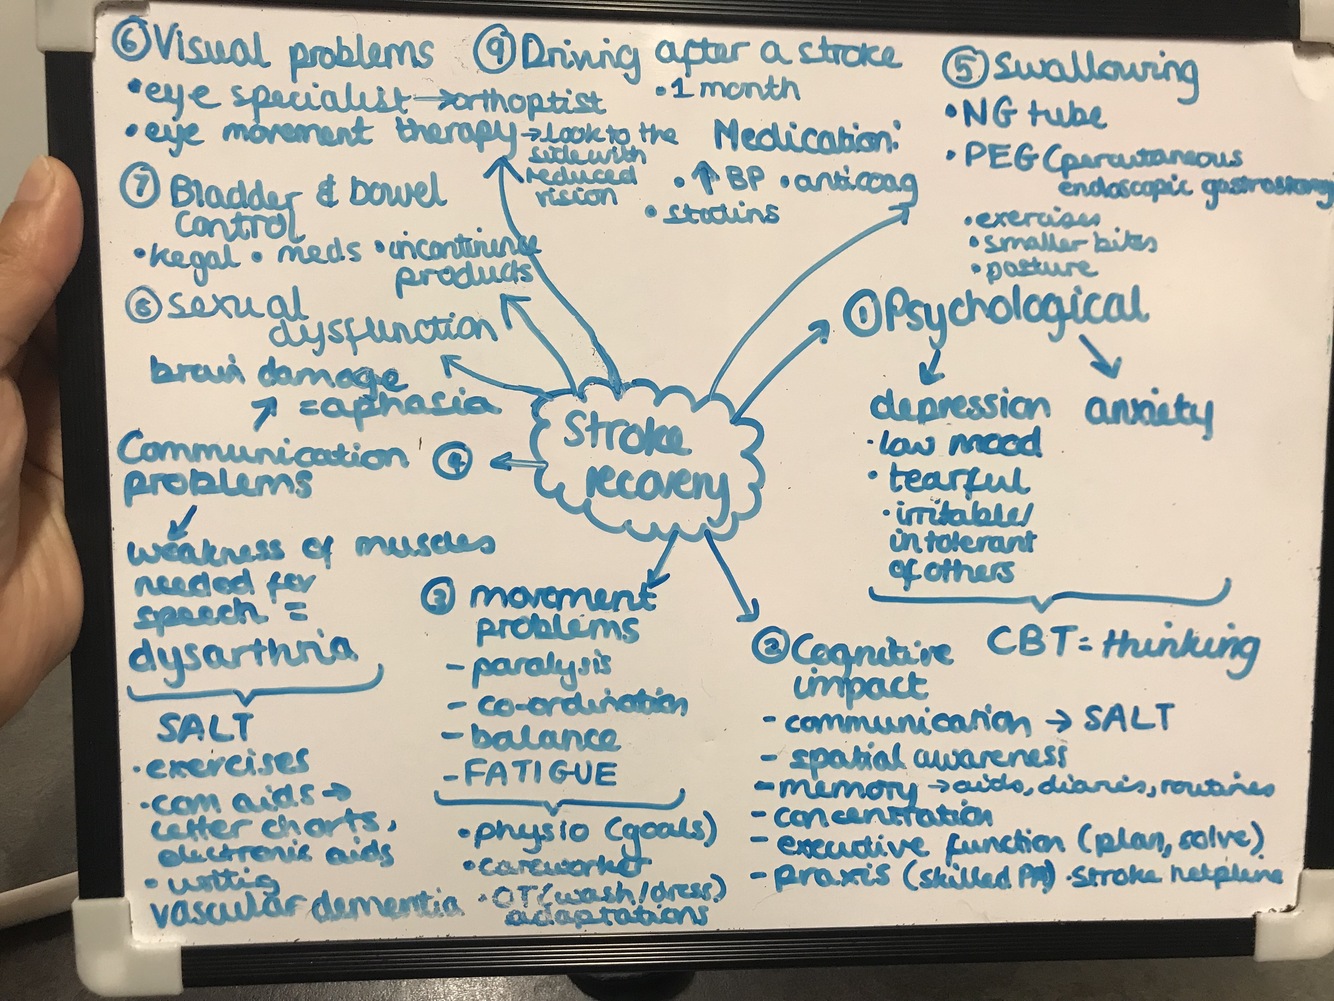 ⑥ Visual problems
• eye specialist → orthoptist
• eye movement therapy → Look to the
side with
reduced
vision
⑨ Driving after a stroke
• 1 month
Medication:
• ↑ BP • anticoag
• statins
⑤ Swallowing
• NG tube
• PEG (percutaneous
endoscopic gastrostomy
• exercises
• smaller bites
• posture
⑦ Bladder & bowel
control
• kegal • meds • incontinence
products
⑧ sexual
dysfunction
① Psychological
depression
• low mood
• tearful
• irritable/
intolerant
of others
anxiety
CBT = thinking
Stroke
recovery
brain damage
= aphasia
Communication ④
problems
weakness of muscles
needed for
speech =
dysarthria
SALT
• exercises
• com aids →
letter charts,
electronic aids
• writing
vascular dementia
③ movement
problems
- paralysis
- co-ordination
- balance
- FATIGUE
• physio (goals)
• careworker
• OT (wash/dress)
adaptations
② Cognitive
impact
- communication → SALT
- spatial awareness
- memory → aids, diaries, routines
- concentration
- executive function (plan, solve)
- praxis (skilled PA) • Stroke helpline